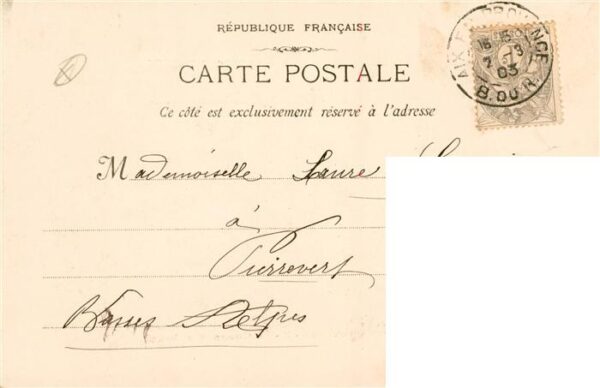 RÉPUBLIQUE FRANÇAISE
CARTE POSTALE
Ce côté est exclusivement réservé à l'adresse
AIX EN PROVENCE
7
03
B. DU R.
Mademoiselle Laure
à
Pierrevert
Basses Alpes